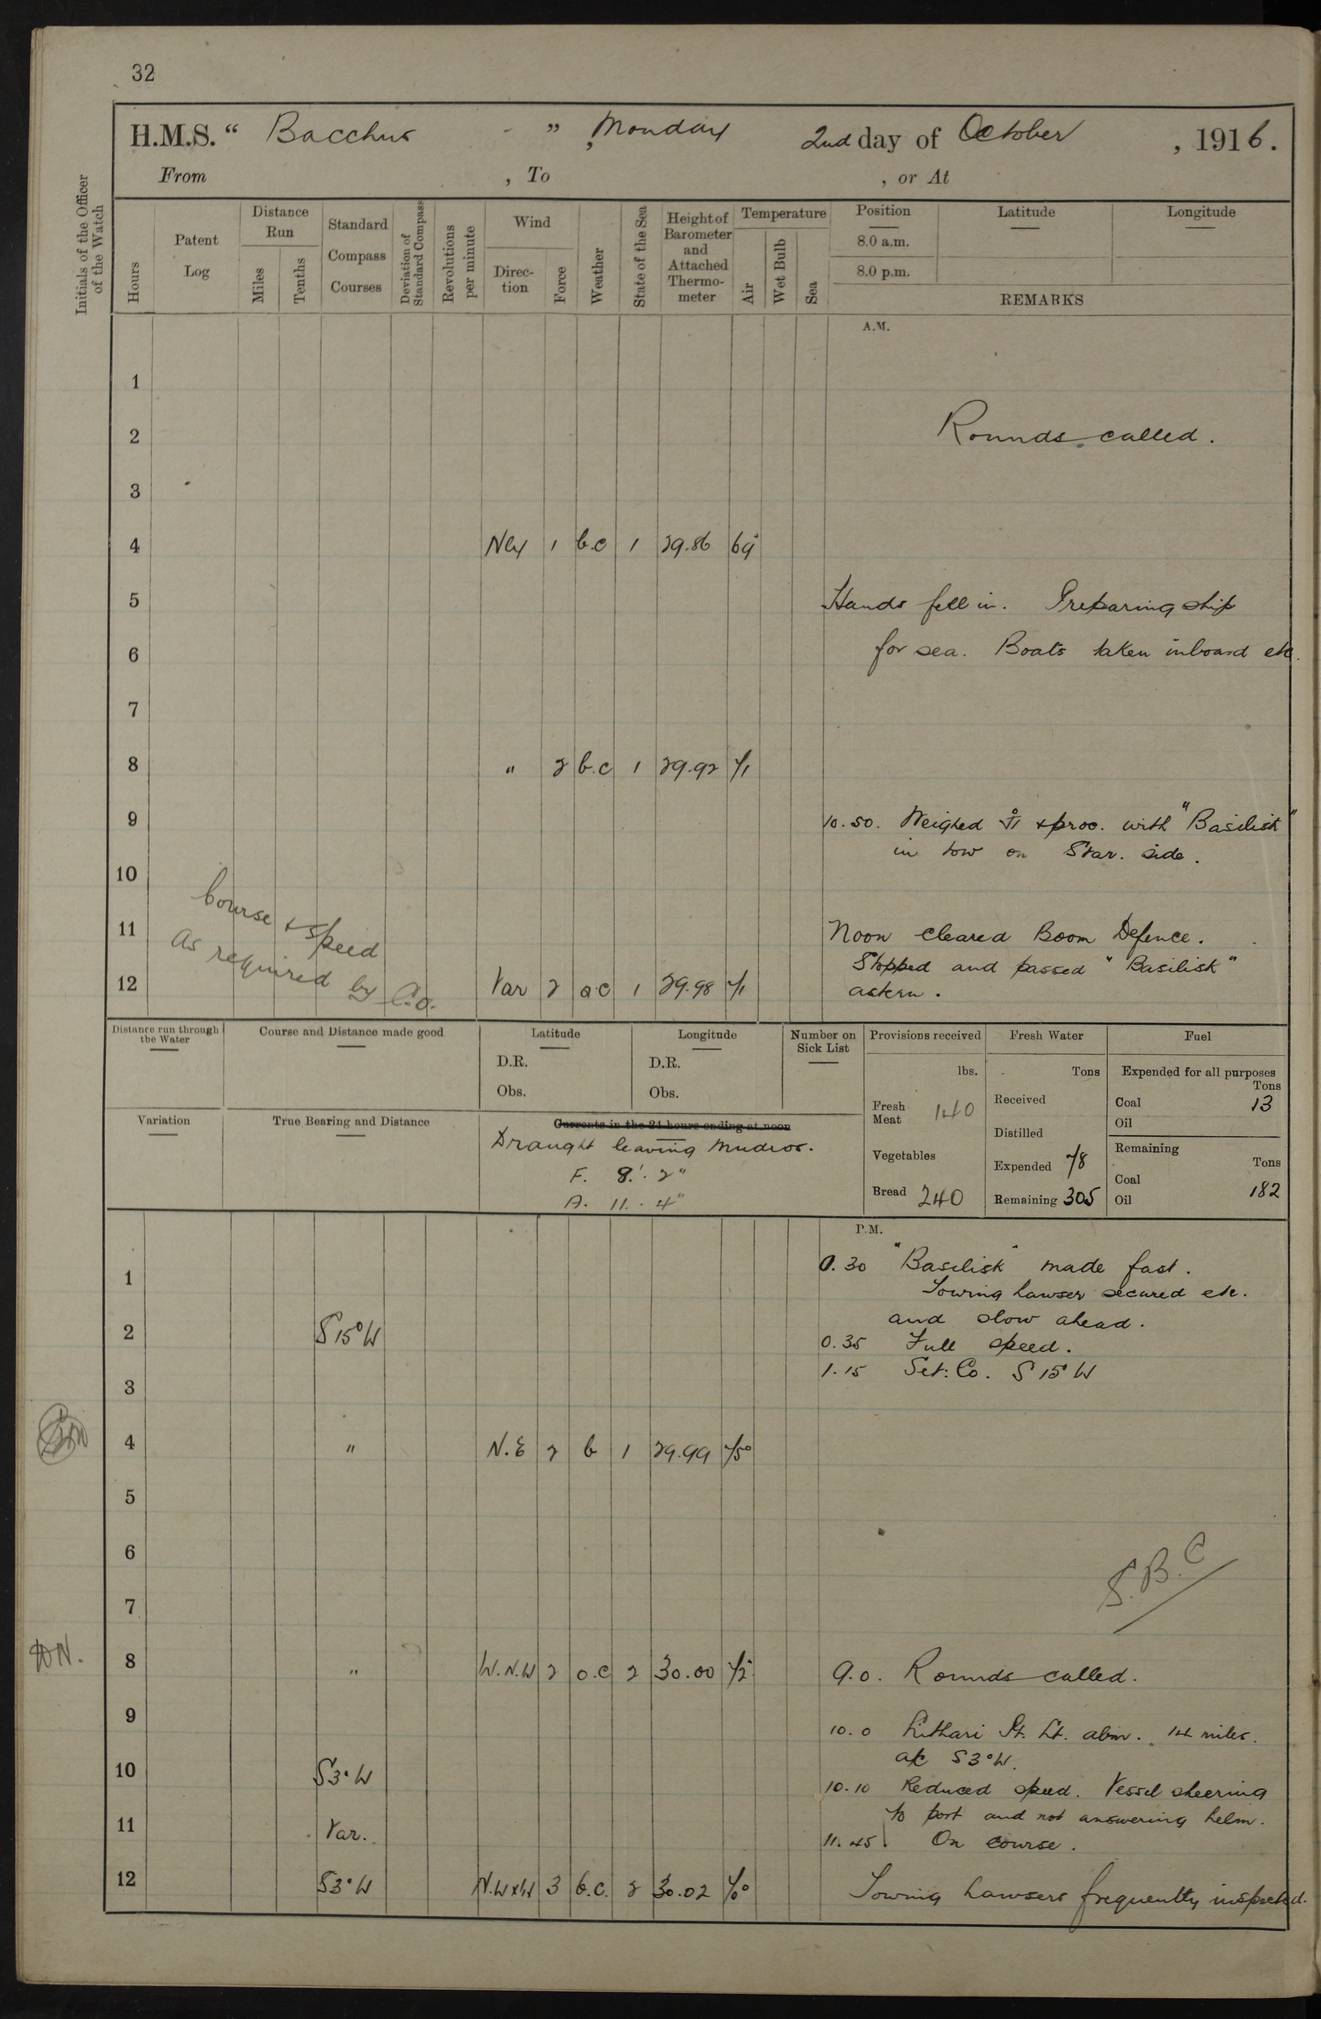 32
H.M.S. " Bacchus " , Monday 2nd day of October , 1916.
From , To , or At
Initials of the Officer of the Watch
Hours
Patent Log
Distance Run
Miles
Tenths
Standard Compass Courses
Deviation of Standard Compass
Revolutions per minute
Wind
Direction
Force
Weather
State of the Sea
Height of Barometer and Attached Thermometer
Temperature
Air
Wet Bulb
Sea
Position
8.0 a.m.
8.0 p.m.
Latitude
Longitude
REMARKS
A.M.
1
2 Rounds called.
3
4 Nly 1 b.c 1 29.86 69°
5 Hands fell in. Preparing ship
6 for sea. Boats taken inboard etc.
7
8 " 2 b.c 1 29.92 71
9 10.50. Weighed & proc. with "Basilisk"
in tow on Star. side.
10
Course & speed
11 Noon cleared Boom Defence.
as required by C.O.
Stopped and passed "Basilisk"
12 Var 2 o.c 1 29.98 71 astern.
Distance run through the Water
Course and Distance made good
Latitude
D.R.
Obs.
Longitude
D.R.
Obs.
Number on Sick List
Provisions received
lbs.
Fresh Meat 140
Vegetables
Bread 240
Fresh Water
Tons
Received
Distilled
Expended 78
Remaining 305
Fuel
Expended for all purposes
Tons
Coal 13
Oil
Remaining
Tons
Coal 182
Oil
Variation
True Bearing and Distance
Currents in the 24 hours ending at noon
Draught leaving Mudros.
F. 8'. 2"
A. 11. 4"
P.M.
0.30 "Basilisk" made fast.
1 Towing hawser secured etc.
and slow ahead.
2 S 15° W 0.35 Full speed.
1.15 Set: Co. S 15° W
3
4 " N.E 2 b 1 29.99 75°
5
6
S.B.C
7
DN.
8 " W.N.W 2 o.c 2 30.00 72° 9.0. Rounds called.
9 10.0 Lithari Pt. Lt. abm. 14 miles.
a/c S 3° W.
10 S 3° W 10.10 Reduced speed. Vessel sheering
to port and not answering helm.
11 Var. 11.45 On course.
12 S 3° W N.W x W 3 b.c. 2 30.02 70° Towing hawsers frequently inspected.